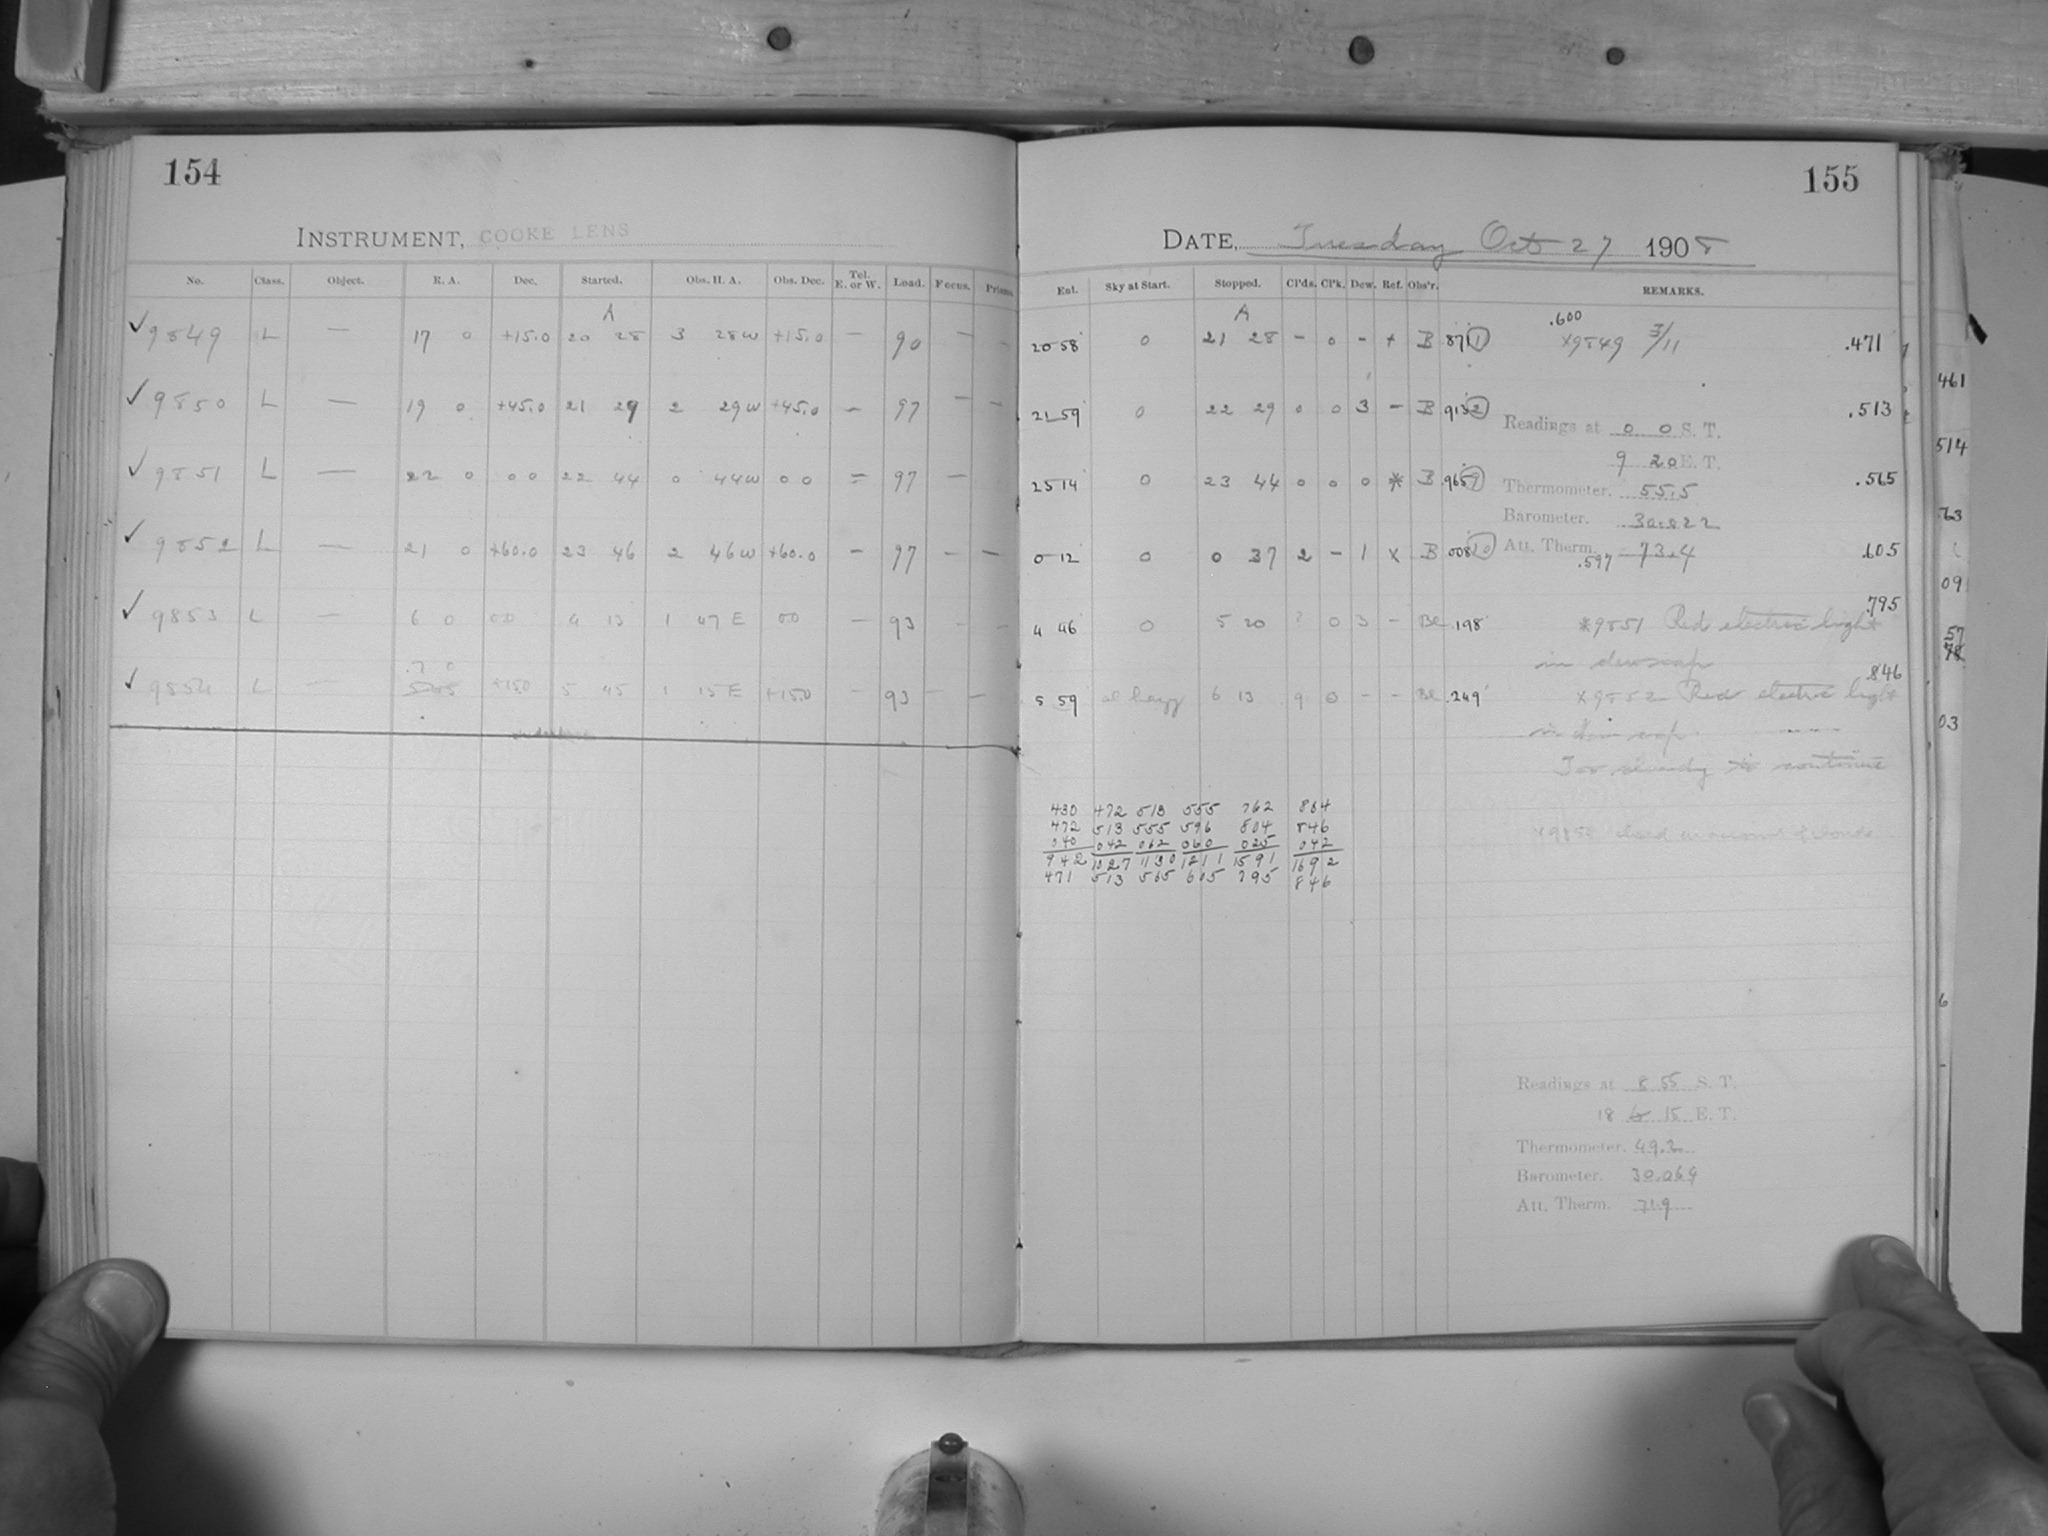 154
INSTRUMENT, COOKE LENS
No. Class. Object. R. A. Dec. Started. Obs. H. A. Obs. Dec. Tel. E. or W. Load. Focus. Prisms.
A
✓ 9849 L — 17 0 +15.0 20 28 3 28w +15.0 — 90 — —
✓ 9850 L — 19 0 +45.0 21 29 2 29w +45.0 — 97 — —
✓ 9851 L — 22 0 00 22 44 0 44w 00 — 97 —
✓ 9852 L — 21 0 +60.0 23 46 2 46w +60.0 — 97 — —
✓ 9853 L — 6 0 00 4 13 1 47 E 00 — 93 — —
7 0
✓ 9854 L — +150 5 45 1 15 E +150 — 93 — —
155
DATE, Tuesday Oct 27 1908
Ent. Sky at Start. Stopped. Cl'ds. Cl'k. Dew. Ref. Obs'r. REMARKS.
A
.600
20 58 0 21 28 — 0 — + B .871 x9849 3/11 .471
21 59 0 22 29 0 0 3 — B 913 2 .513
Readings at 0 0 S. T.
9 20 E. T.
23 14 0 23 44 0 0 0 * B .965 .565
Thermometer. 55.5
Barometer. 30.022
Att. Therm. 73.4
0 12 0 0 37 2 — 1 x B .008 .605
.597
.795
4 46 0 5 20 ? 0 3 — Be .198 *9851 Red electric light
in dewcap
.846
5 59 6 13 9 0 — — Be .249 x9852 Red electric light
in dew cap
Too cloudy to continue
430 472 513 555 762 804
472 513 555 596 804 846
040 042 062 060 025 042
942 1027 1130 1211 1591 1692
471 513 565 605 795 846
Readings at 8 55 S. T.
18 15 E. T.
Thermometer. 49.2
Barometer. 30.069
Att. Therm. 71.9
461
514
63
09
57
78
03
6